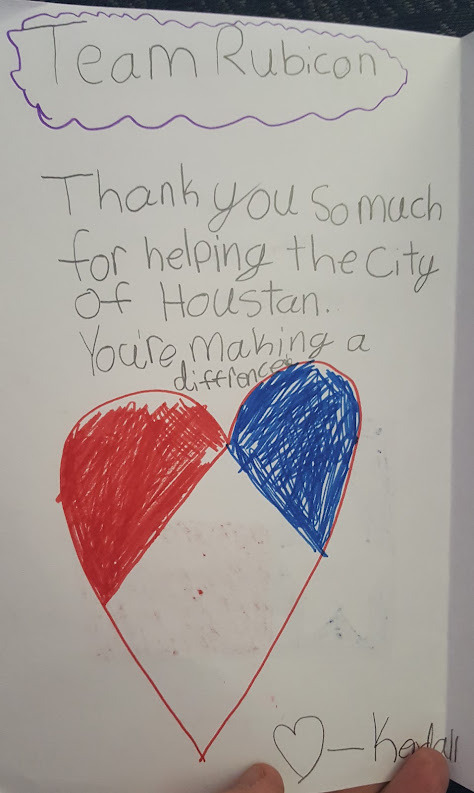 Team Rubicon
Thank you so much
for helping the city
of Houstan.
You're making a
diffrence
— Kendall